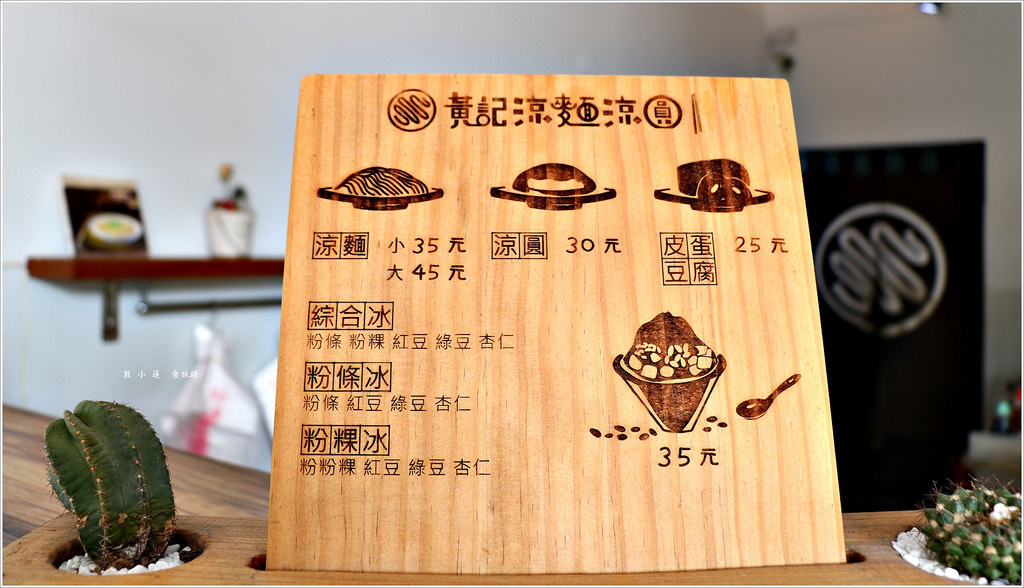 黃記涼麵涼圓
涼麵 小35元 涼圓 30元 皮蛋豆腐 25元
大45元
綜合冰
粉條 粉粿 紅豆 綠豆 杏仁
粉條冰
粉條 紅豆 綠豆 杏仁
粉粿冰
粉粉粿 紅豆 綠豆 杏仁
35元